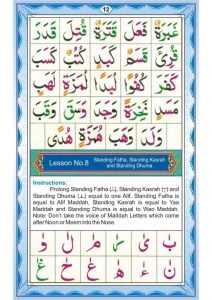 12
غَبَرَةٌ فَعَلَ قَتَرَةٌ قُتِلَ قَدَرَ
قُرِئَ قَسَمٌ كَبَدٍ كُتُبٌ كَسَبَ
كَفَرَ كُفُوًا لُبَدًا لُمَزَةٍ لَهَبٍ
مَسَدٍ نَخِرَةً وَجَدَ
وَهَبَ هُمَزَةٍ هُدًى
Lesson No.8 Standing Fatha, Standing Kasrah
and Standing Dhuma
Instructions:
Prolong Standing Fatha (ٰ), Standing Kasrah (ٖ) and
Standing Dhuma (ٗ) equal to one Alif. Standing Fatha is
equal to Alif Maddah, Standing Kasrah is equal to Yaa
Maddah and Standing Dhuma is equal to Wao Maddah.
Note: Don't take the voice of Maddah Letters which come
after Noon or Meem into the Nose.